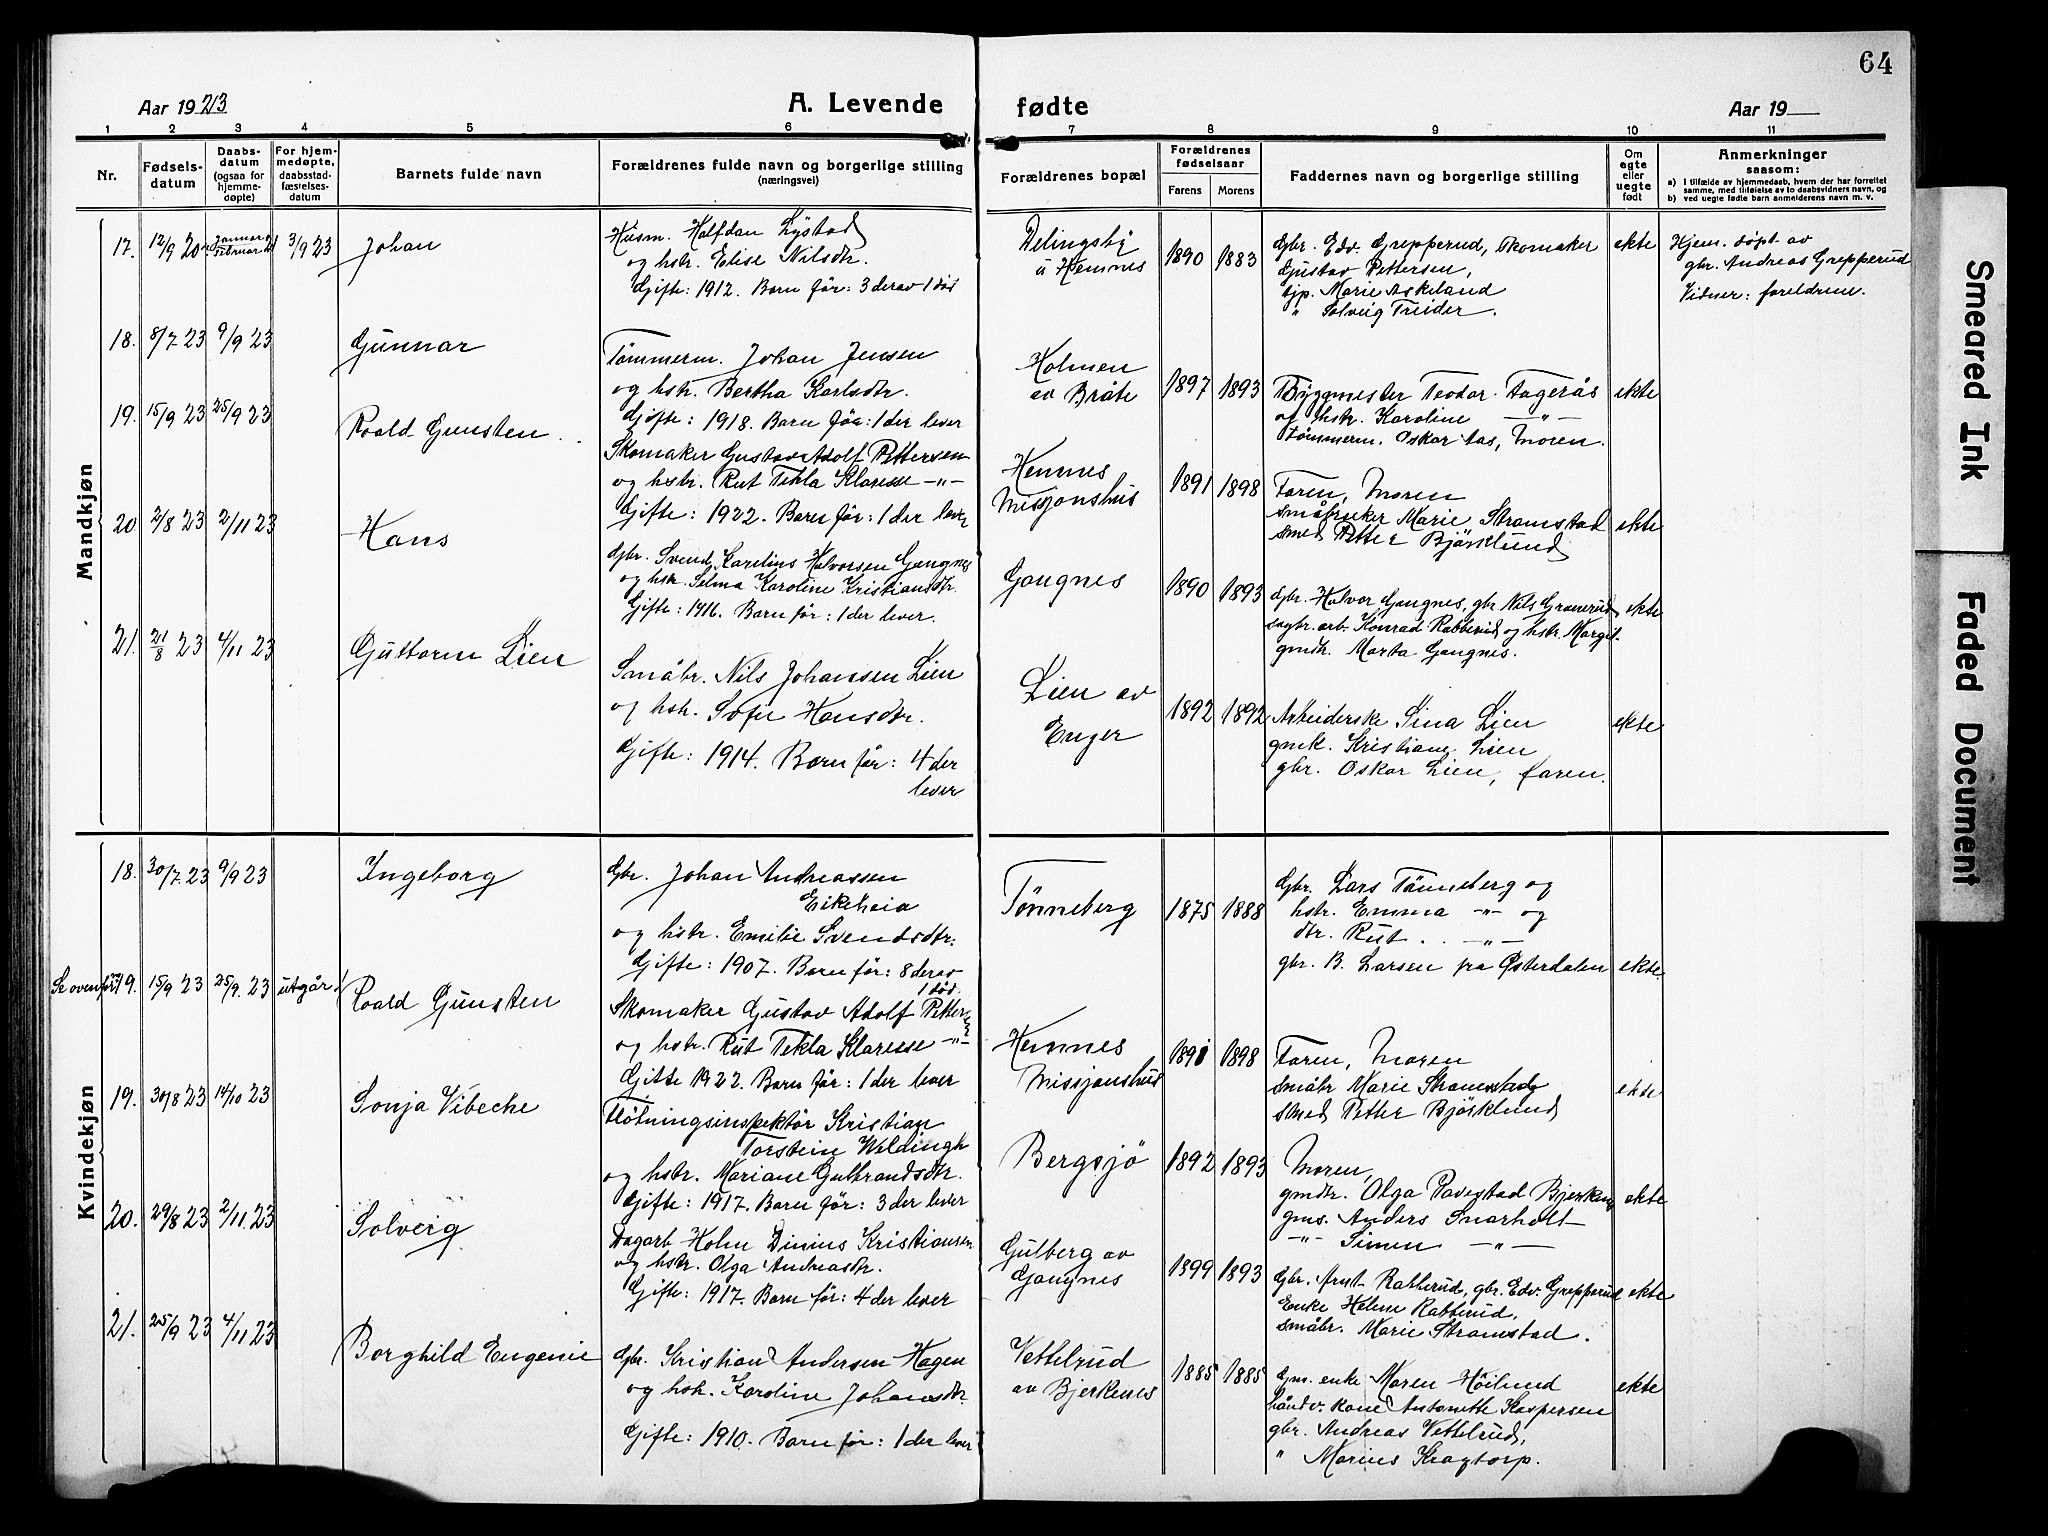 64
Aar 1923
A. Levende fødte
Aar 19
1 2 3 4 5 6 7 8 9 10 11
Nr.
Fødsels-
datum
Daabs-
datum
(ogsaa for
hjemme-
døpte)
For hjem-
medøpte,
daabsstad-
fæstelses-
datum
Barnets fulde navn
Forældrenes fulde navn og borgerlige stilling
(næringsvei)
Forældrenes bopæl
Forældrenes
fødselsaar
Farens Morens
Faddernes navn og borgerlige stilling
Om
egte
eller
uegte
født
Anmerkninger
saasom:
a) I tilfælde av hjemmedaab, hvem der har forrettet
samme, med tilføielse av to daabsvidners navn, og
b) ved uegte fødte barn anmelderens navn m. v.
Mandkjøn
17. 12/9 20 Januar Februar 21 3/9 23 Johan
Husm. Halfdan Lystad
og hstr. Elise Nilsdtr.
Gifte: 1912. Barn før: 3 derav 1 død
Delingsby
u Hemnes
1890 1883
Gbr. Edv. Grepperud, skomaker
Gustav Pettersen,
tjp. Marie Askeland
" Solveig Treider.
ekte
Hjem. døpt av
gbr. Andreas Grepperud
Vidner: foreldrene.
18. 8/7 23 9/9 23 Gunnar
Tømmerm. Johan Jensen
og hstr. Bertha Karlsdtr.
Gifte: 1918. Barn før: 1 der lever
Holmen
av Bråte
1897 1893
Byggmester Teodor Fagerås
og hstr. Karoline —"—
tømmerm. Oskar Aas, Moren.
ekte
19. 15/9 23 25/9 23 Roald Gunsten
Skomaker Gustav Adolf Pettersen
og hstr. Rut Tekla Klaresse —"—
Gifte: 1922. Barn før: 1 der lever
Hemnes
Missjonshus
1891 1898
Faren, Moren
småbruker Marie Stramstad
smed Petter Bjørklund
ekte
20 2/8 23 2/11 23 Hans
Gbr. Svend Karelius Halvorsen Gangnes
og hstr. Selma Karoline Kristiansdtr.
Gifte: 1916. Barn før: 1 der lever.
Gangnes
1890 1893
Gbr. Halvor Gangnes, gbr Nils Granerud
sagbr. arb. Konrad Rabberud og hstr. Margit
gmdtr. Marta Gangnes.
ekte
21. 21/8 23 4/11 23 Guttorm Lien
Småbr. Nils Johansen Lien
og hstr. Sofie Hansdtr.
Gifte: 1914. Barn før: 4 der
lever
Lien av
Enger
1892 1892
Arbeiderske Sina Lien
gmk. Kristiane Lien
gbr. Oskar Lien, faren.
ekte
Kvindekjøn
18. 30/7 23 9/9 23 Ingeborg
Gbr. Johan Andreassen
Eikeheia
og hstr. Emilie Svendsdtr.
Gifte: 1907. Barn før: 8 derav
1 død.
Tønneberg
1875 1888
Gbr. Lars Tønneberg og
hstr. Emma —"— og
dtr. Rut —"—
gbr. B. Larsen fra Østerdalen
ekte
Se ovenfor 19. 15/9 23 25/9. 23 utgår! Roald Gunsten
Skomaker Gustav Adolf Pettersen
og hstr. Rut Tekla Klaresse —"—
Gifte 1922. Barn før: 1 der lever
Hemnes
Missjonshus
1891 1898
Faren, Moren
småbr Marie Stramstad
smed Petter Bjørklund
ekte
19. 30/8 23 14/10 23 Sonja Vibeche
Fløtningsinspektør Kristian
Torstein Weldingh
og hstr. Mariane Gulbrandsdtr.
Gifte: 1917. Barn før: 3 der lever
Bergsjø
1892 1893
Moren,
gmdtr. Olga Tavestad Bjerknes
gms. Anders Snarholt
—"— Simen —"—
ekte
20. 29/8 23 2/11 23 Solveig
Dagarb Holm Dinius Kristiansen
og hstr. Olga Andreasdtr.
Gifte: 1917. Barn før: 4 der lever
Gulberg av
Gangnes
1899 1893
Gbr. Arnt Rabberud, gbr. Edv. Grepperud
Enke Helene Rabberud,
småbr. Marie Stramstad.
ekte
21. 25/9 23 4/11 23 Borghild Eugenie
Gbr. Kristian Andersen Hagen
og hstr. Karoline Johansdtr.
Gifte: 1910. Barn før: 1 der lever
Vettelrud
av Bjerknes
1885 1885
Gm. enke Maren Høilund
håndv. kone Antonette Kaspersen
gbr. Andreas Vettelrud,
" Marius Skogtorp.
ekte
Smeared Ink
Faded Document